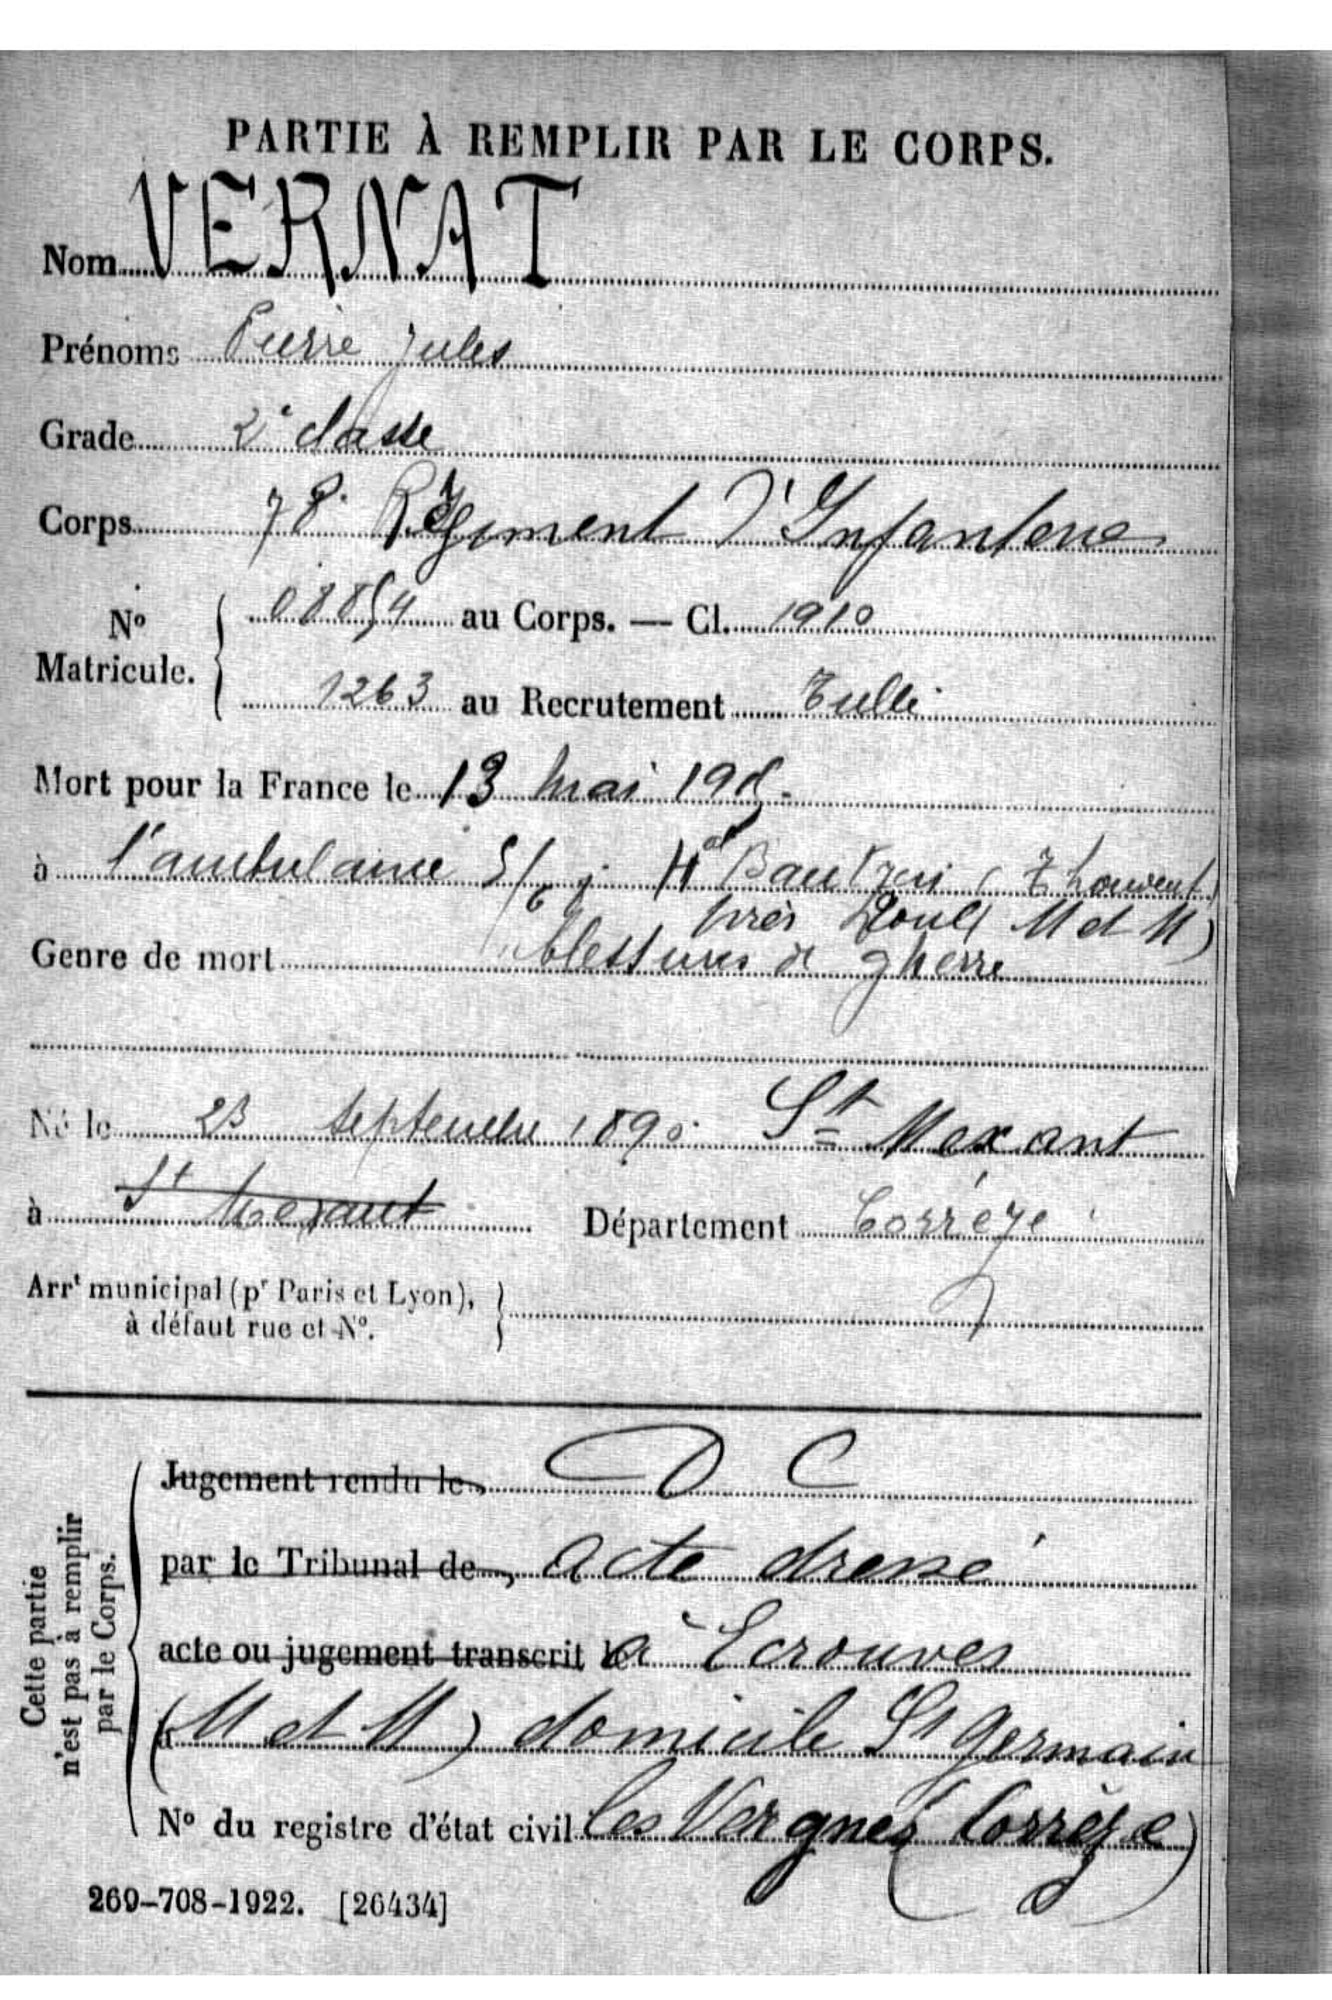 PARTIE À REMPLIR PAR LE CORPS.
Nom VERNAT
Prénoms Pierre Jules
Grade 2e classe
Corps 78e Régiment d'Infanterie
No Matricule. 08854 au Corps. — Cl. 1910
1263 au Recrutement Tulle
Mort pour la France le 13 mai 1915
à l'ambulance 5/6 Hal Bautzen (Thouvent
près Toul M et M)
Genre de mort blessures de guerre
Né le 23 septembre 1890 St Mexant
à St Mexant Département Corrèze
Arrt municipal (pr Paris et Lyon),
à défaut rue et No.
Cette partie
n'est pas à remplir
par le Corps.
Jugement rendu le D C
par le Tribunal de acte dressé
acte ou jugement transcrit le à Ecrouves
à (M et M) domicile St Germain
No du registre d'état civil les Vergnes (Corrèze)
269-708-1922. [26434]